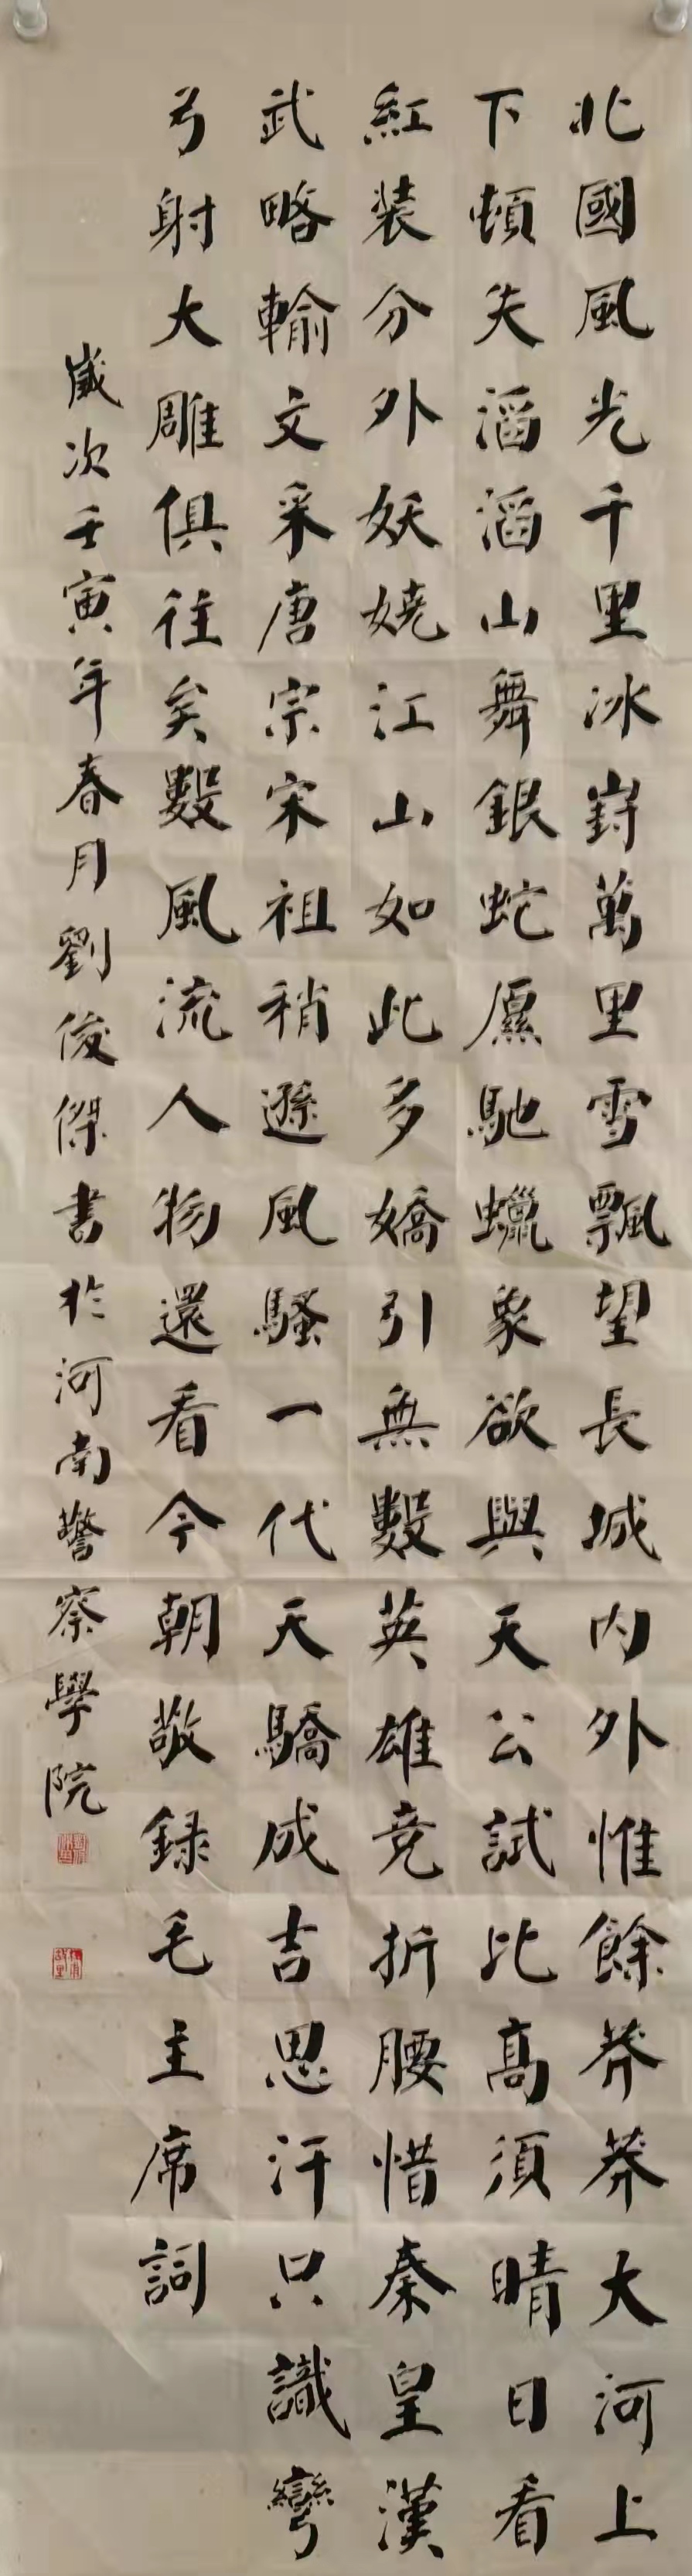 北國風光千里冰封萬里雪飄望長城内外惟餘莽莽大河上
下頓失滔滔山舞銀蛇原馳蠟象欲與天公試比高須晴日看
紅装分外妖嬈江山如此多嬌引無數英雄竞折腰惜秦皇漢
武略輸文采唐宗宋祖稍遜風騷一代天驕成吉思汗只識彎
弓射大雕俱往矣數風流人物還看今朝敬録毛主席詞
歲次壬寅年春月劉俊傑書於河南警察學院